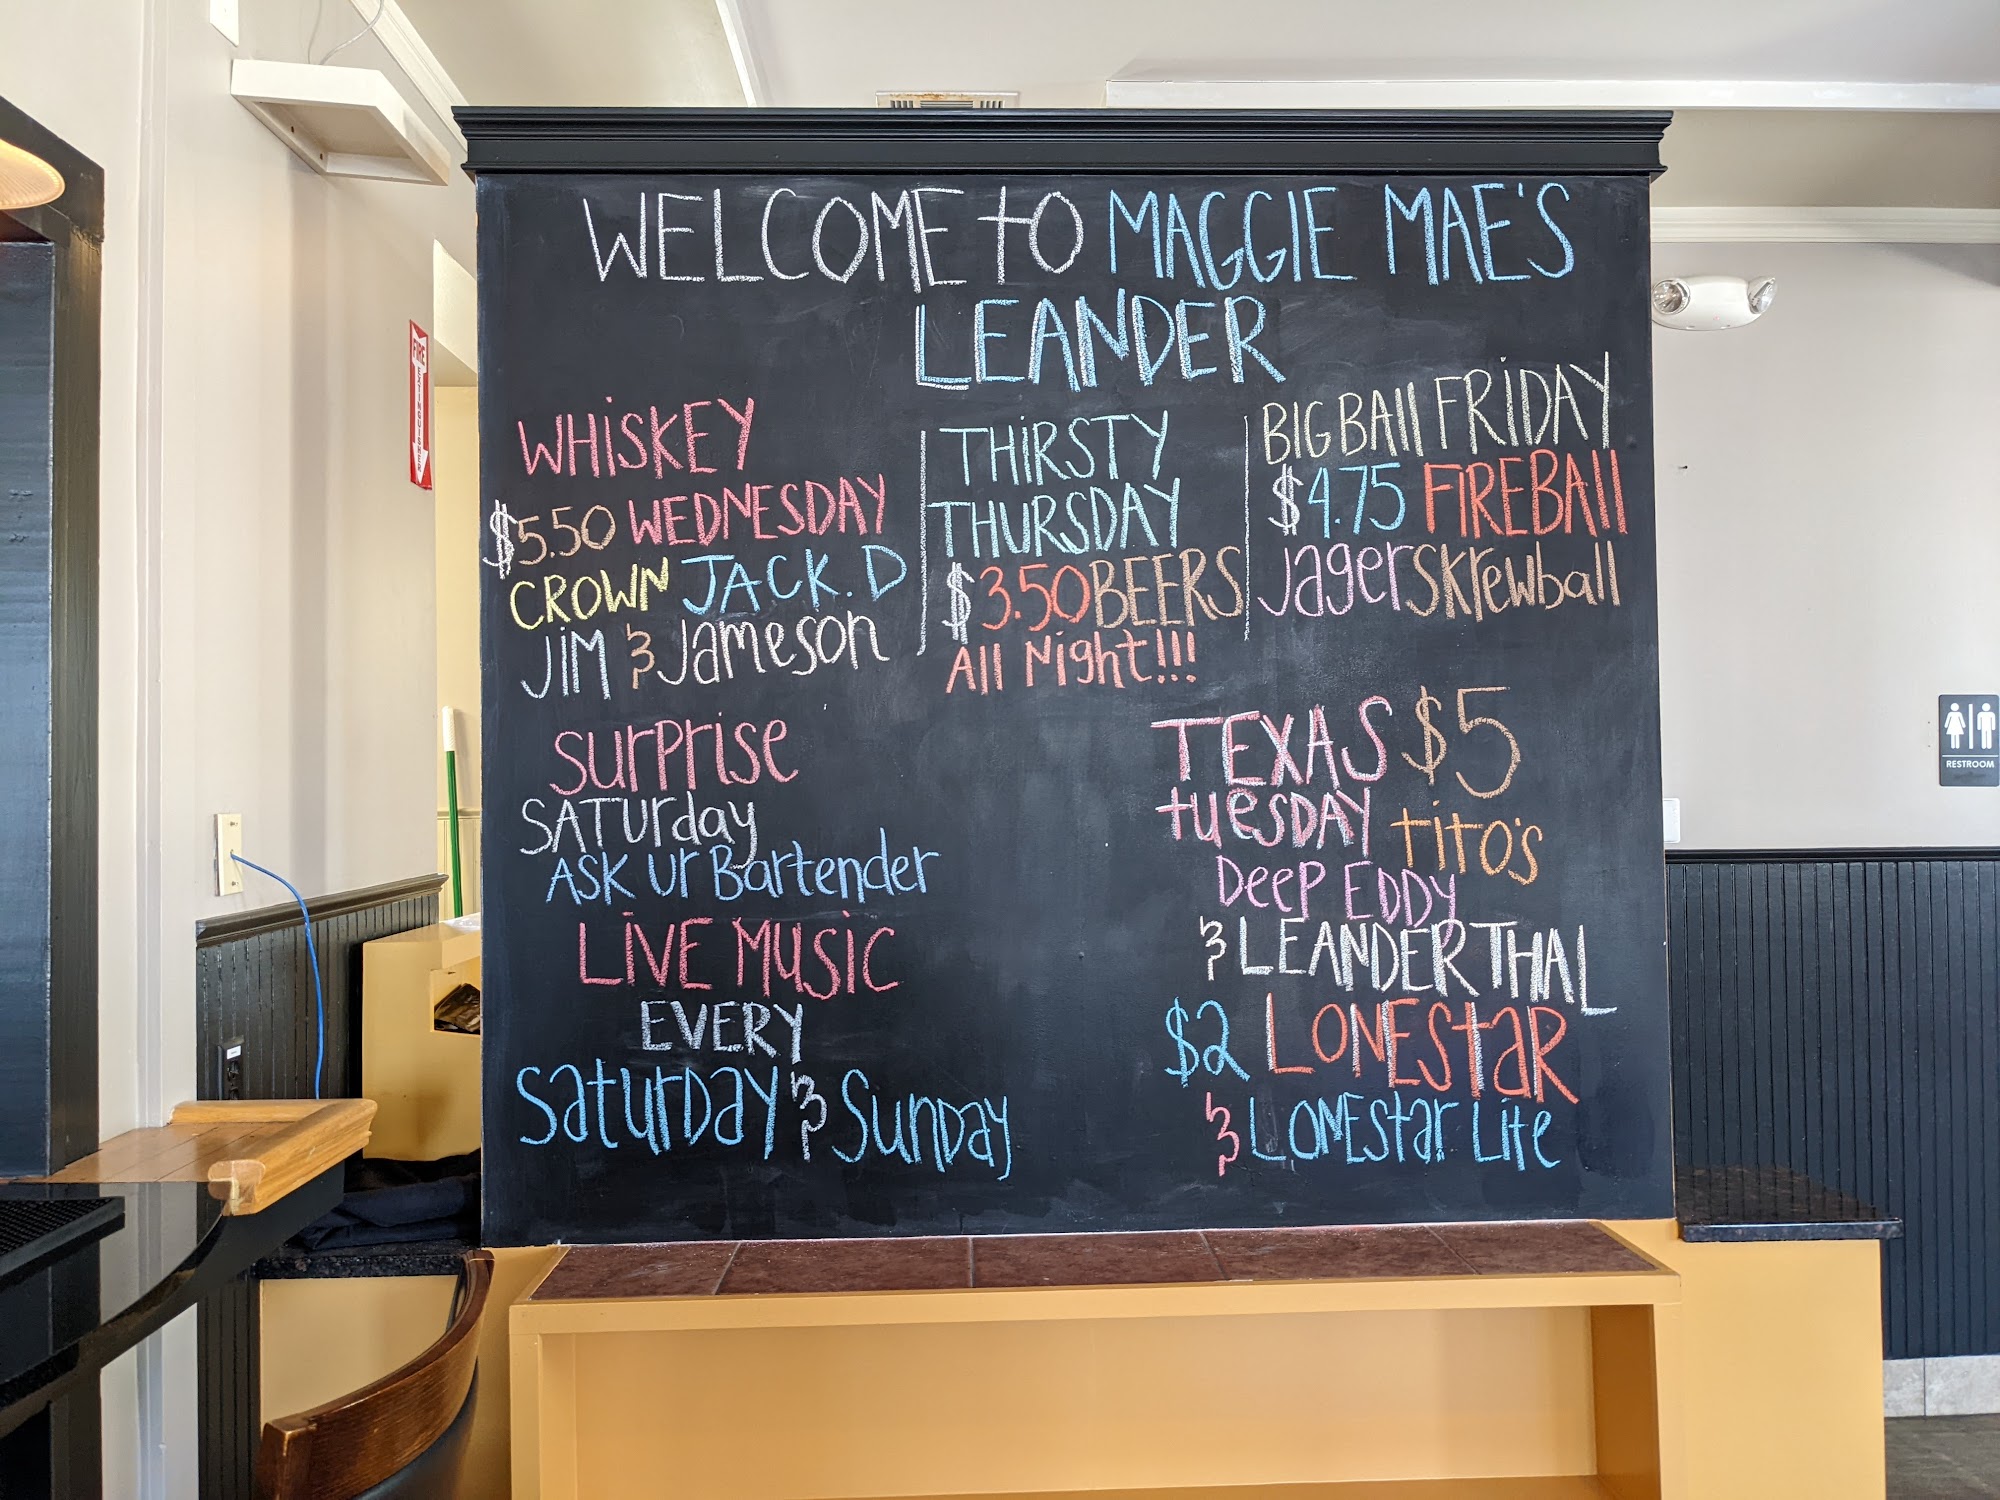 WELCOME to MAGGIE MAE'S
LEANDER
WHiSKEY
$5.50 WEDNESDAY
CROWN JACK. D
JiM & Jameson
THiRSTY
THURSDAY
$3.50 BEERS
All Night!!!
BIG BAll FRiDAY
$4.75 FIREBAll
Jager Skrewball
Surprise
SATurday
ASK Ur Bartender
LiVE MUSiC
EVERY
SaturDay & SunDay
TEXAS $5
tuesDAY tito's
Deep EDDy
& LEANDERTHAL
$2 LONEStaR
& LONEStar Lite
FIRE
EXTINGUISHER
RESTROOM